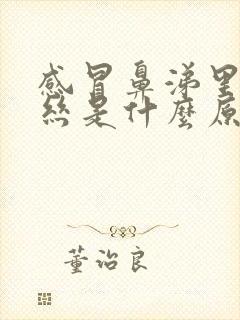 感冒鼻涕里
絲是什麼原
董治良